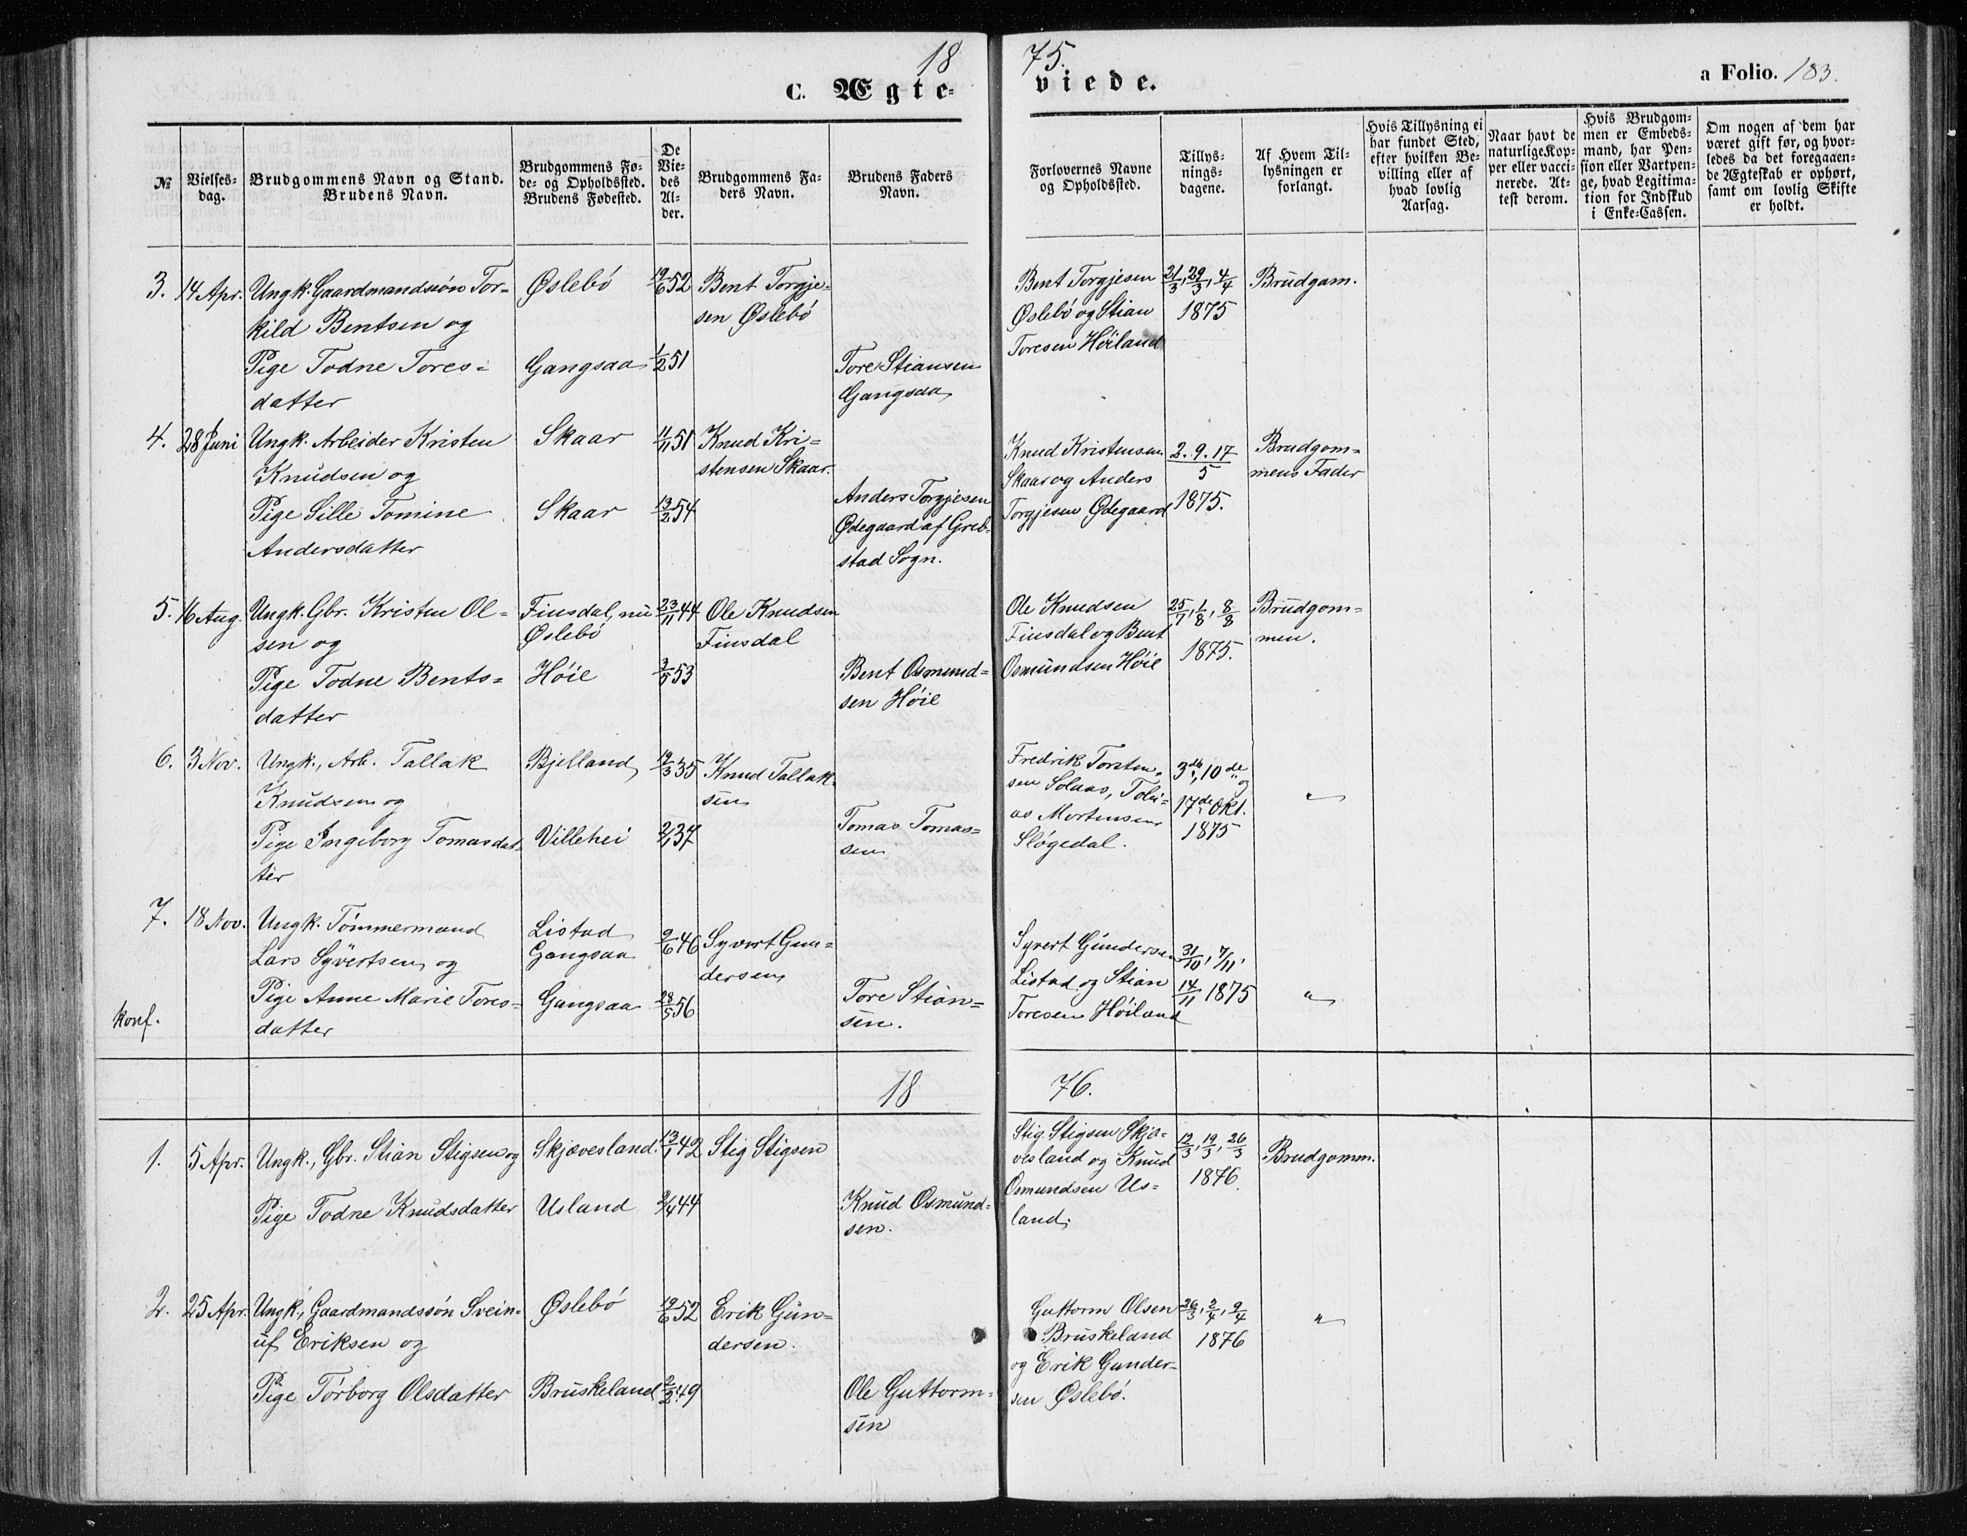 18 75.
C. Ægte- viede. a Folio. 183.
№
Vielses-
dag.
Brudgommens Navn og Stand.
Brudens Navn.
Brudgommens Fø-
de- og Opholdssted.
Brudens Fødested.
De
Vie-
des
Al-
der.
Brudgommens Fa-
ders Navn.
Brudens Faders
Navn.
Forlovernes Navne
og Opholdssted.
Tillys-
nings-
dagene.
Af Hvem Til-
lysningen er
forlangt.
Hvis Tillysning ei
har fundet Sted,
efter hvilken Be-
villing eller af
hvad lovlig
Aarsag.
Naar havt de
naturlige Kop-
per eller vacci-
nerede. At-
test derom.
Hvis Brudgom-
men er Embeds-
mand, har Pen-
sion eller Vartpen-
ge, hvad Legitima-
tion for Indskud
i Enke-Cassen.
Om nogen af dem har
været gift før, og hvor-
ledes da det foregaaen-
de Ægteskab er ophørt,
samt om lovlig Skifte
er holdt.
3. 14 Apr.
Ungk. Gaardmandssøn Tor-
kild Bentsen og
Pige Todne Tores-
datter
Øslebö
Gangsaa
19/6 52
1/2 51
Bent Torgje-
sen Øslebö
Tore Stiansen
Gangsaa
Bent Torgjesen
Øslebö og Stian
Toresen Höiland
21/3, 29/3, 4/4
1875
Brudgom.
4. 28 Juni
Ungk. Arbeider Kristen
Knudsen og
Pige Sille Tomine
Andersdatter
Skaar
Skaar
11/11 51
13/2 54
Knud Kri-
stensen Skaar.
Anders Torgjesen
Ødegaard af Greb-
stad Sogn.
Knud Kristensen
Skaar og Anders
Torgjesen Ødegaard
2. 9. 17/5
1875.
Brudgom-
mens Fader
5. 16 Aug.
Ungk. Gbr. Kristen Ol-
sen og
Pige Todne Bents-
datter
Finsdal, nu
Øslebö
Höie
23/11 44
3/5 53
Ole Knudsen
Finsdal
Bent Osmund-
sen Höie
Ole Knudsen
Finsdal og Bent
Osmundsen Höie
25/7, 1/8, 8/8
1875.
Brudgom-
men.
6. 3 Nov.
Ungk., Arb. Tallak
Knudsen og
Pige Ingeborg Tomasdat-
ter
Bjelland
Villehei
19/3 35
2/1 37
Knud Tallak-
sen
Tomas Tomas-
sen
Fredrik Torsten-
sen Solaas, Tobi-
as Mortensen
Slögedal.
3de, 10de og
17de Okt.
1875
"
7. 18 Nov.
konf.
Ungk. Tömmermand
Lars Syvertsen og
Pige Anne Marie Tores-
datter
Listad
Gangsaa
Gangsaa
2/6 46
28/5 56
Syvert Gun-
dersen
Tore Stian-
sen.
Syvert Gundersen
Listad og Stian
Toresen Höiland
31/10, 7/11,
14/11 1875
"
18 76.
1. 5 Apr.
Ungk., Gbr. Stian Stigsen og
Pige Todne Knudsdatter
Skjævesland.
Usland
13/1 42
2/4 44
Stig Stigsen
Knud Osmund-
sen.
Stig Stigsen Skjæ-
vesland og Knud
Osmundsen Us-
land.
12/3, 19/3, 26/3
1876.
Brudgomm.
2. 25 Apr.
Ungk., Gaardmandssön Svein-
uf Eriksen og
Pige Törborg Olsdatter
Øslebö
Bruskeland
19/6 52
2/2 49
Erik Gun-
dersen.
Ole Guttorm-
sen
Guttorm Olsen
Bruskeland
og Erik Gunder-
sen Øslebö.
26/3, 2/4, 9/4
1876
"